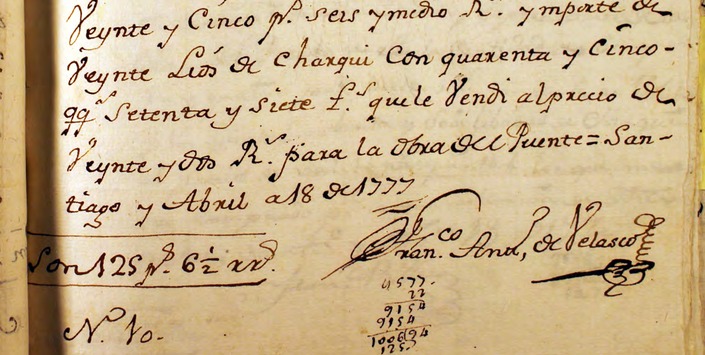 Veynte y Cinco p.s seis y medio R.s y mporte de
Veynte Lios de Charqui Con quarenta y Cinco-
qq.s Setenta y siete f.s que le Vendi al precio de
Veynte y dos R.s para la obra del Puente = San-
tiago y Abril a 18 de 1777
Son 125 p.s 6 1/2 rr.s
Fran.co Ant.o de Velasco
4577.
22
9154
9154
100694
125
N.o 10.